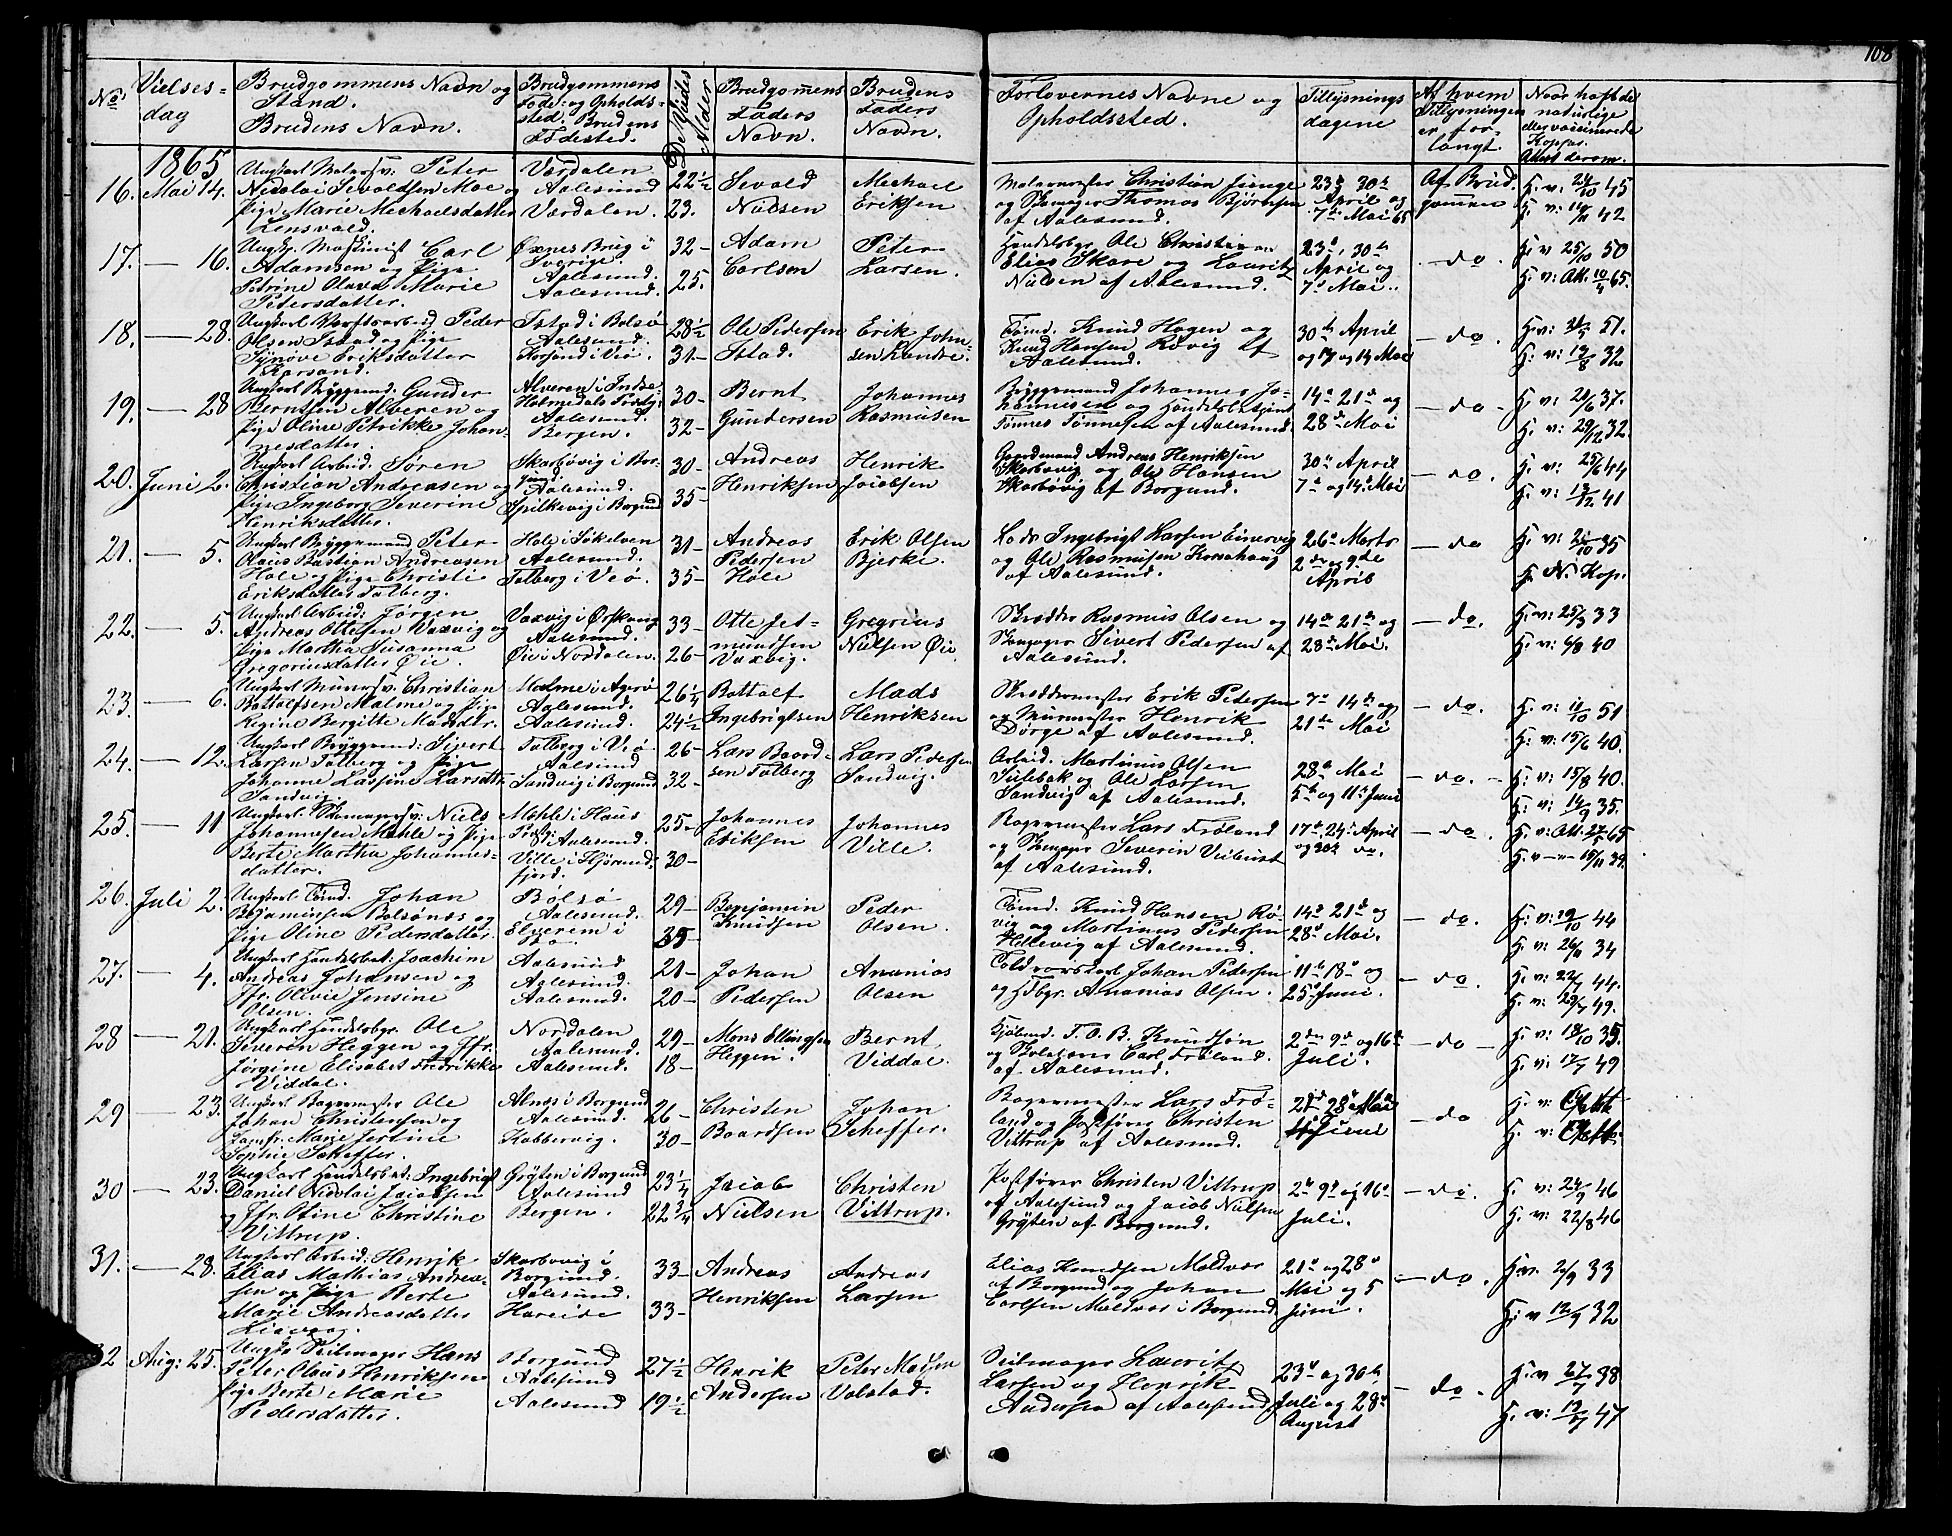 108
No Vielses-
dag
Brudgommens Navn og
Stand.
Brudens Navn.
Brudgommens
Føde- og Opholds-
sted. Brudens
Fødested.
De Viedes
Alder
Brudgommens
Faders
Navn.
Brudens
Faders
Navn.
Forlovernes Navne og
Opholdssted.
Tillysnings
dagene
Af hvem
Tillysningen
er for-
langt.
Naar havt de
naturlige
eller vaccinerede
Kopper.
Attest derom.
1865
16. Mai 14.
Ungkarl Malersv. Peter
Nicolai Sevaldsen Moe og
Pige Marie Michaelsdatter
Værdalen
Aalesund
Værdalen.
22½
23.
Sevald
Nielsen
Michael
Eriksen
Malermester Christian Junge
og Skomager Thomas Bjørnsen
af Aalesund.
23de 30te
April og
7de Mai 65
Af Brud-
gommen
H. v: 24/10 45
H. v: 11/11 42
17. — 16.
Ungk. Maskinist Carl
Adamsen og Pige
Petrine Olava Marie
Petersdatter.
Øxnes Brug i
Sverige.
Aalesund.
Aalesund.
32-
25.
Adam
Carlsen
Peter
Larsen.
Handelsbgr. Ole Christian
Elias Skare og Lauritz
Nielsen af Aalesund.
23de, 30te
April og
7de Mai.
- do.
H. v 25/10 50
H. v: Att. 10/4 65.
18. — 28.
Ungkarl Værftsarbeid. Peder
Olsen Istad og Pige
Synøve Eriksdatter
Korsand.
Istad i Bolsø
Aalesund.
Korsand i Veø.
28½
31-
Ole Pedersen
Istad.
Erik John-
sen Landre.
Tømd. Knud Hagen og
Knud Hansen Røvig af
Aalesund.
30te April
og 7de og 14 Mai
- do.
H. v: 31/5 51.
H. v: 13/8 32
19. — 28
Ungkarl Byggemd. Gunder
Berntsen Alveren og
Pige Oline Petrikke Johan-
nesdatter.
Alveren i Indre
Holmedals Prstg.
Aalesund.
Bergen.
30-
32-
Bernt
Gundersen
Johannes
Rasmusen
Byggemand Johannes Jo-
hannesen og Handelsbetjent
Tønnes Tønnesen af Aalesund.
14de 21de og
28de Mai
- do -
H. v: 26/6 37.
H. v: 29/12 32.
20. Juni 2.
Ungkarl Arbeid. Søren
Christian Andreasen og
Pige Ingeborg Severine
Henriksdatter.
Skarbøvig i Bor-
gund.
Aalesund.
Spilkevig i Borgund
30-
35-
Andreas
Henriksen
Henrik
Jacobsen
Gaardmand Andreas Henriksen
Skarbøvig og Ole Hansen
Skarbøvig af Borgund.
30te April
7de og 14de Mai
- do.
H. v: 25/6 44
H. v: 13/12 41
21. — 5.
Ungkarl Byggemand Peter
Claus Bastian Andreasen
Hole og Pige Christi
Eriksdatter Talberg.
Hole i Søkelven
Aalesund.
Talberg i Veø.
31-
35-
Andreas
Pedersen
Hole
Erik Olsen
Bjerke.
Lods Ingebrigt Larsen Einervig
og Ole Rasmusen Korsehaug
af Aalesund.
26de Marts
2den og 9de
April
- do
H. v: 2/10 35
H. N. Kop.
22. — 5.
Ungkarl Arbeid: Jørgen
Andreas Ottesen Vaxvig og
Pige Martha Susanna
Gregoriusdatter Øie.
Vaxvig i Ørskoug
Aalesund.
Øie i Nordalen.
33-
26-
Otte Jet-
mundsen
Vaxvig.
Gregorius
Nielsen Øie.
Skrædder Rasmus Olsen og
Skomager Sivert Pedersen af
Aalesund.
14de 21de og
28de Mai.
- do.
H. v: 25/3 33
H. v: 6/8 40
23. — 6.
Ungkarl Murersv. Christian
Bottolfsen Malme og Pige
Regine Bergitte Madsdtr.
Malme i Agerø
Aalesund.
Aalesund.
26¼
24½
Bottolf
Ingebrigtsen
Mads
Henriksen
Skræddermester Erik Pedersen
og Murmester Henrik
Dørge af Aalesund.
7de 14de og
21de Mai
- do.
H. v: 11/10 51
H. v: 15/6 40.
24. — 12.
Ungkarl Byggemd: Sivert
Larsen Talberg og Pige
Johanne Larsine Larsdtr
Sandvig.
Talberg i Veø
Aalesund
Sandvig i Borgund
26-
32-
Lars Baard-
sen Talberg
Lars Pedersen
Sandvig.
Arbeid. Martinus Olsen
Sulebak og Ole Larsen
Sandvig af Aalesund.
28de Mai
5te og 11te Juni
- do. -
H. v: 15/8 40.
H. v: 14/9 35.
25. — 11
Ungkarl Skomagersv. Niels
Johannesen Mehle og Pige
Berte Martha Johannes-
datter.
Mehle i Haus
Prstg.
Aalesund.
Ville i Hjørund-
fjord.
25-
30-
Johannes
Eriksen
Johannes
Ville.
Bagermester Lars Frøland
og Skomager Severin Veibust
af Aalesund.
17de, 24de April
og 30te do.
- do.
H. v: Att. 27/5 65
H. v — 15/11 39.
26. Juli 2.
Ungkarl Tømd. Johan
Benjaminsen Bolsønæs og
Pige Oline Pedersdatter.
Bolsø
Aalesund.
Elverem i
29-
35-
Benjamin
Knudsen
Peder
Olsen.
Tømd. Knud Hansen Rø-
vig og Martinus Pedersen
Hellevig af Aalesund.
14de 21de og
28de Mai.
- do.
H. v: 19/10 44
H. v: 26/11 34
27. — 4.
Ungkarl Handelsbet. Joachim
Andreas Johansen og
Jfr. Olivie Jensine
Olsen.
Aalesund
Aalesund.
Aalesund.
21-
20-
Johan
Pedersen
Ananias
Olsen
Toldroerskarl Johan Pedersen
og Hdbgr. Ananias Olsen.
11te 18de og
25de Juni.
- do.
H. v: 22/7 44.
H. v: 29/7 49.
28 — 21.
Ungkarl Handelsbgr. Ole
Severin Heggen og Jfr.
Jørgine Elisabet Fredrikke
Viddal.
Nordalen
Aalesund.
Aalesund.
29-
18-
Mons Ellingsen
Heggen.
Bernt
Viddal
Kjøbmd. T. O. B. Knudsøn
og Carl Frøland.
af Aalesund.
2den 9de og 16de
Juli.
- do -
H. v: 18/10 35.
H. v: 17/7 49
29 — 23.
Ungkarl Bagermester Ole
Johan Christensen og
Jomfr. Marie Jertine
Sophie Scheffer.
Alnæs i Borgund
Aalesund.
Kobbervig.
26-
30-
Christen
Baardsen
Johan
Scheffer.
Bagermester Lars Frø-
land og Postfører Christen
Vittrup af Aalesund.
21de 28de Mai
Juni
- do
H. v:
H. v:
30 — 23.
Ungkarl Handelsbet. Ingebrigt
Daniel Nicolai Jacobsen
og Jfr. Stine Christine
Vittrup.
Grøten i Borgund
Aalesund
Bergen.
23¼
22¾
Jacob
Nielsen
Christen
Vittrup.
Postfører Christen Vittrup
af Aalesund og Jacob Nielsen
Grøten af Borgund.
2de 9de og 16de
Juli.
- do.
H. v: 24/9 46
H. v: 22/8 46
31. — 28.
Ungkarl Arbeid. Henrik
Elias Mathias Andrea-
sen og Pige Berte
Marie Andreasdatter
Liavaag.
Skarbøvig i
Borgund.
Aalesund.
Hareide
33-
33-
Andreas
Henriksen
Andreas
Larsen
Elias Knudsen Moldvær
af Borgund og Johan
Carlsen Moldvær i Borgund.
21de og 28de
Mai og 5
Juni.
- do.
H. v. 2/9 33
H. v 12/9 32
32 Aug: 25.
Ungk. Seilmager Hans
Peter Olaus Henriksen
Pige Berte Marie
Pedersdatter.
Borgund
Aalesund
Aalesund
27½
19½
Henrik
Andersen
Peter Madsen
Valstad.
Seilmager Lauritz
Larsen og Henrik
Andersen af Aalesund
23de og 30te
Juli og 28de
August
- do.
H. v 27/7 38
H. v: 19/7 47